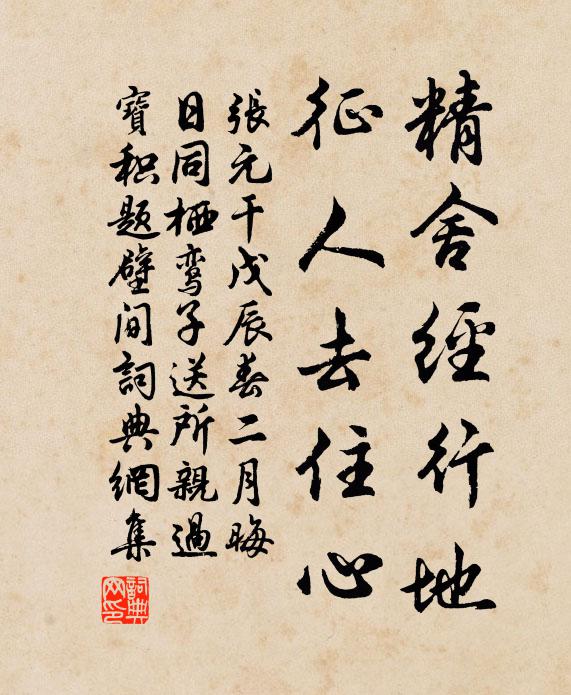 精舍經行地
征人去住心
張元干戊辰春二月晦
日同栖鸾子送所親過
寶积题壁间詞典網集